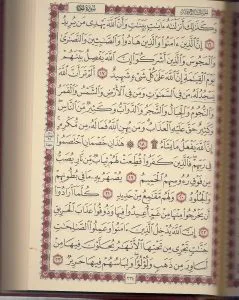 سُورَةُ الحَجِّ
وَكَذَٰلِكَ أَنزَلْنَٰهُ ءَايَٰتٍۭ بَيِّنَٰتٍ وَأَنَّ ٱللَّهَ يَهْدِى مَن يُرِيدُ
١٦ إِنَّ ٱلَّذِينَ ءَامَنُوا۟ وَٱلَّذِينَ هَادُوا۟ وَٱلصَّٰبِـِٔينَ وَٱلنَّصَٰرَىٰ
وَٱلْمَجُوسَ وَٱلَّذِينَ أَشْرَكُوٓا۟ إِنَّ ٱللَّهَ يَفْصِلُ بَيْنَهُمْ
يَوْمَ ٱلْقِيَٰمَةِ إِنَّ ٱللَّهَ عَلَىٰ كُلِّ شَىْءٍ شَهِيدٌ ١٧ أَلَمْ تَرَ أَنَّ ٱللَّهَ
يَسْجُدُ لَهُۥ مَن فِى ٱلسَّمَٰوَٰتِ وَمَن فِى ٱلْأَرْضِ وَٱلشَّمْسُ وَٱلْقَمَرُ
وَٱلنُّجُومُ وَٱلْجِبَالُ وَٱلشَّجَرُ وَٱلدَّوَآبُّ وَكَثِيرٌ مِّنَ ٱلنَّاسِ
وَكَثِيرٌ حَقَّ عَلَيْهِ ٱلْعَذَابُ وَمَن يُهِنِ ٱللَّهُ فَمَا لَهُۥ مِن مُّكْرِمٍ
إِنَّ ٱللَّهَ يَفْعَلُ مَا يَشَآءُ ۩ ١٨ هَٰذَانِ خَصْمَانِ ٱخْتَصَمُوا۟
فِى رَبِّهِمْ فَٱلَّذِينَ كَفَرُوا۟ قُطِّعَتْ لَهُمْ ثِيَابٌ مِّن نَّارٍ يُصَبُّ
مِن فَوْقِ رُءُوسِهِمُ ٱلْحَمِيمُ ١٩ يُصْهَرُ بِهِۦ مَا فِى بُطُونِهِمْ
وَٱلْجُلُودُ ٢٠ وَلَهُم مَّقَٰمِعُ مِنْ حَدِيدٍ ٢١ كُلَّمَآ أَرَادُوٓا۟
أَن يَخْرُجُوا۟ مِنْهَا مِنْ غَمٍّ أُعِيدُوا۟ فِيهَا وَذُوقُوا۟ عَذَابَ ٱلْحَرِيقِ
٢٢ إِنَّ ٱللَّهَ يُدْخِلُ ٱلَّذِينَ ءَامَنُوا۟ وَعَمِلُوا۟ ٱلصَّٰلِحَٰتِ
جَنَّٰتٍ تَجْرِى مِن تَحْتِهَا ٱلْأَنْهَٰرُ يُحَلَّوْنَ فِيهَا مِنْ
أَسَاوِرَ مِن ذَهَبٍ وَلُؤْلُؤًا وَلِبَاسُهُمْ فِيهَا حَرِيرٌ ٢٣
٣٣٤